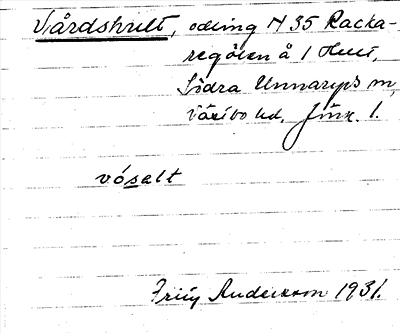 Vårdshult, odling N 35 Racka-
regölen å 1 Hult,
Södra Unnaryps sn,
Västbo hd. Jönk. l.
vósalt
Fritz Anderson 1931.